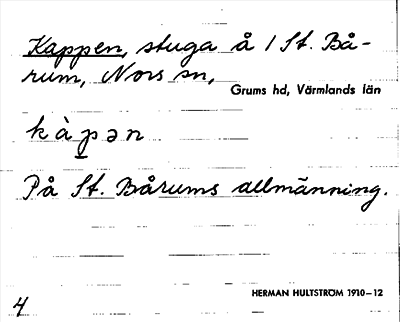 Kappen, stuga å 1 St. Bå-
rum, Nors sn,
Grums hd, Värmlands län
kàpən
På St. Bårums allmänning.
HERMAN HULTSTRÖM 1910–12
4